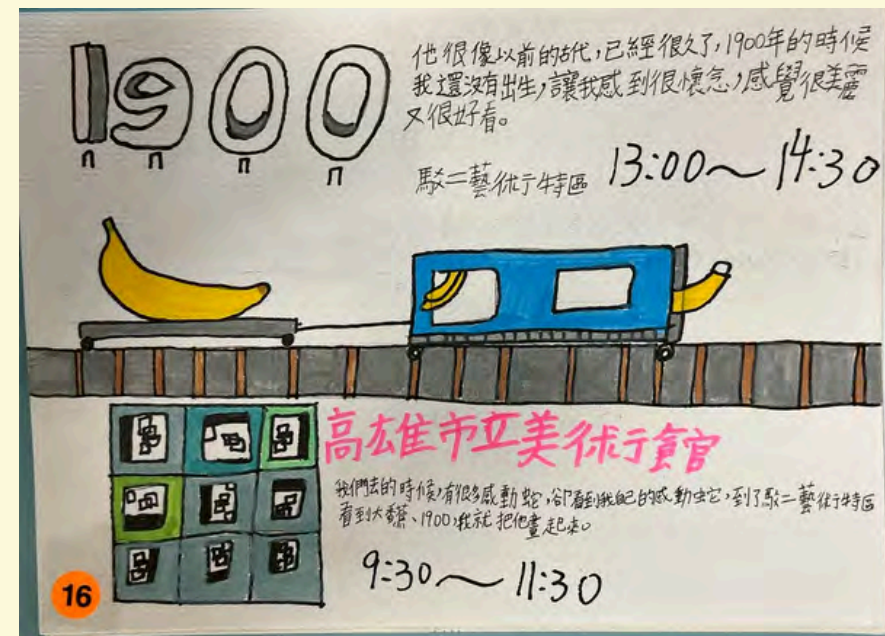 1900
他很像以前的古代，已經很久了，1900年的時候
我還沒有出生，讓我感到很懷念，感覺很美麗
又很好看。
駁二藝術特區 13:00～14:30
高雄市立美術館
我們去的時候，有很多感動蛇，卻看到我自己的感動蛇，到了駁二藝術特區
看到大香蕉、1900，我就把他畫起來。
9:30～11:30
16